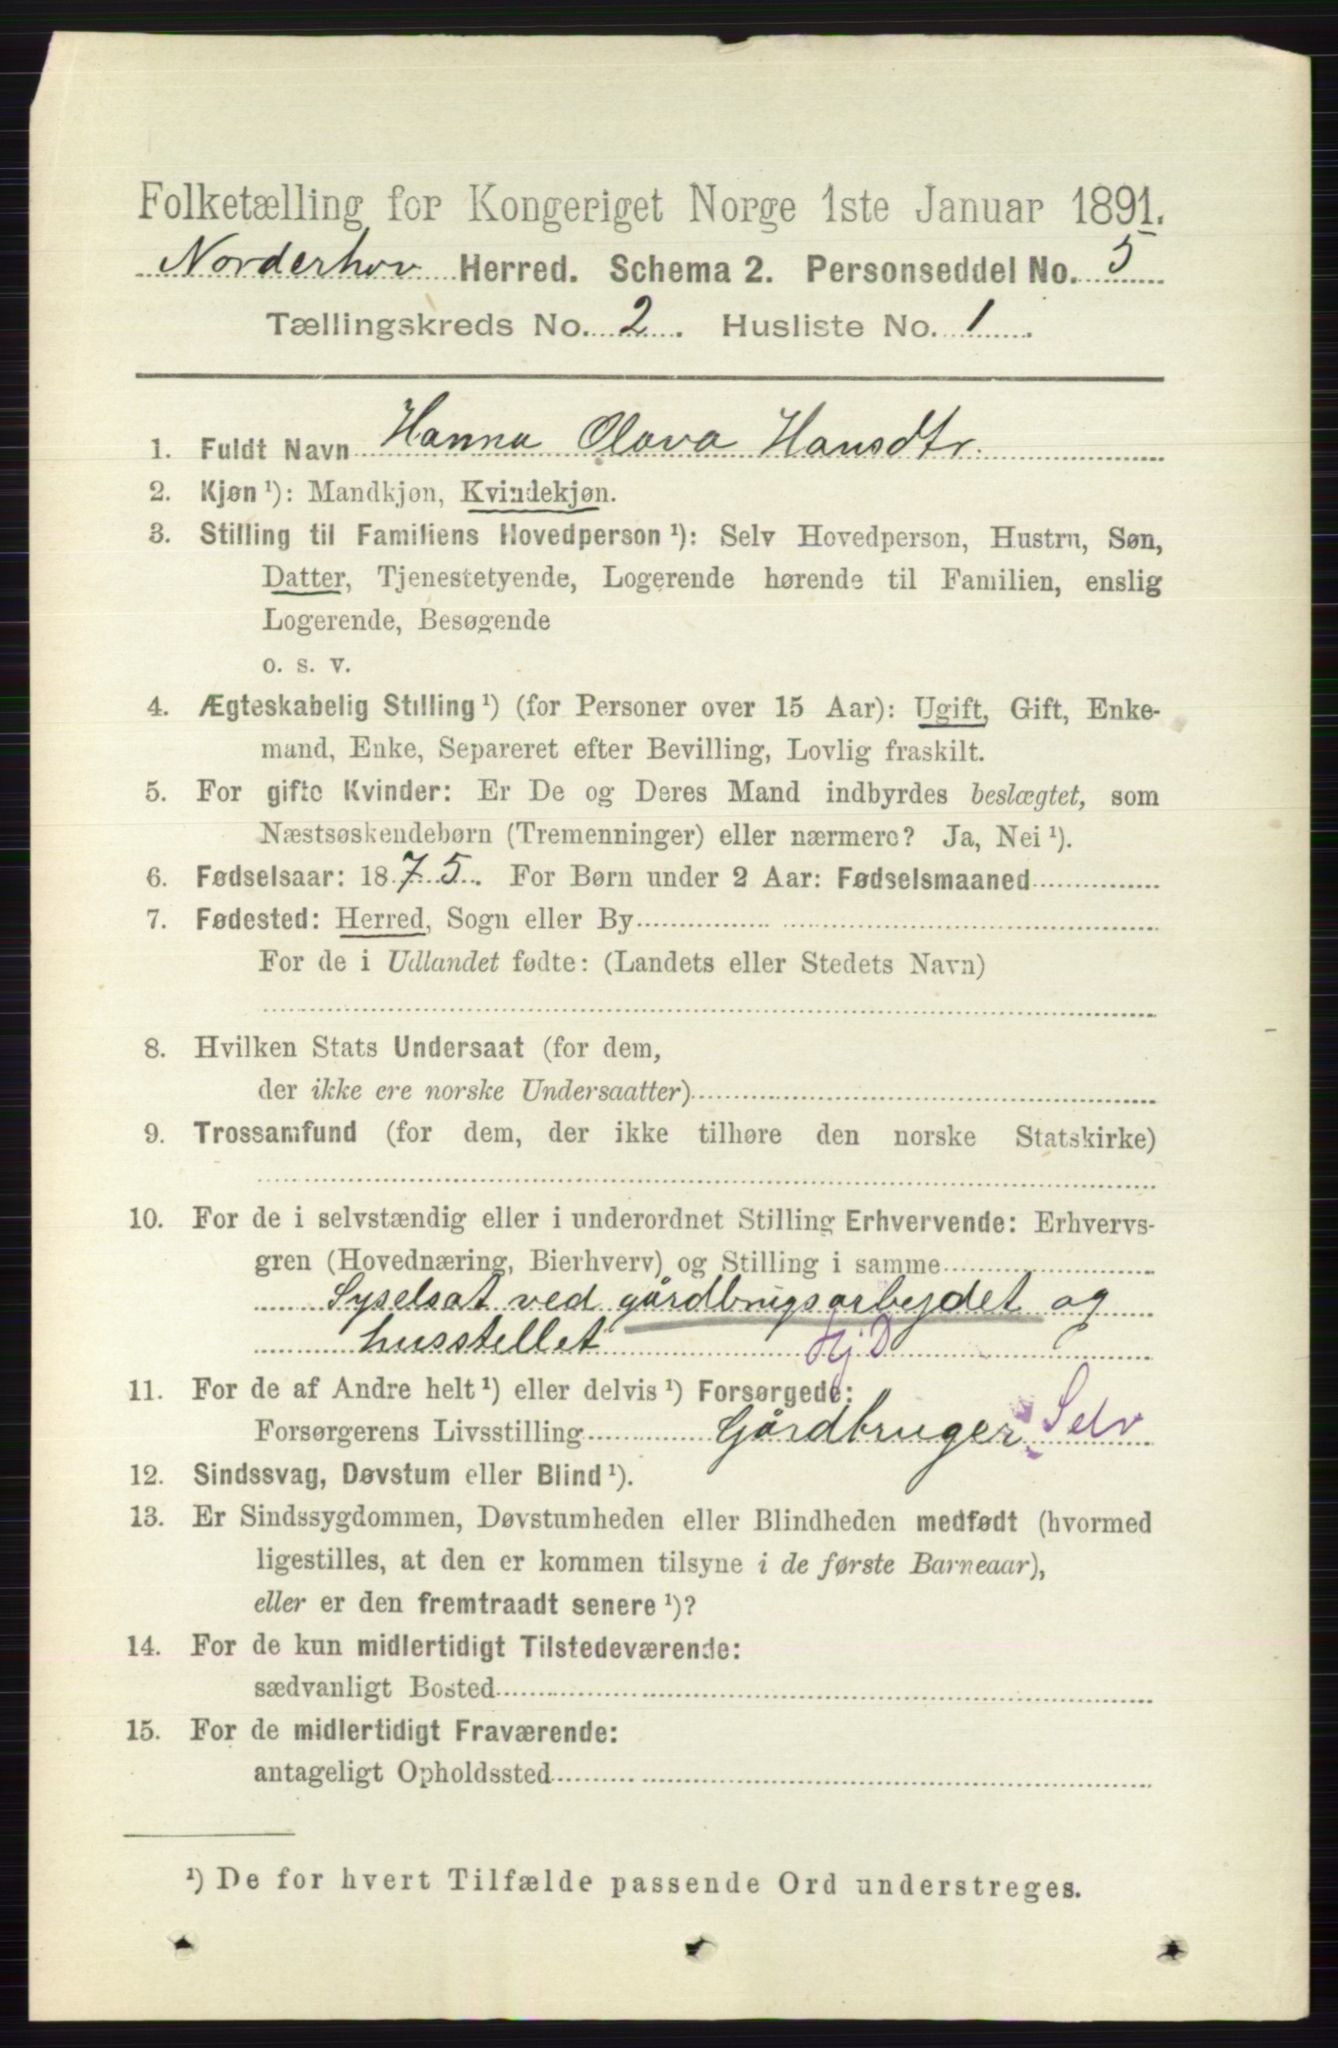 Folketælling for Kongeriget Norge 1ste Januar 1891.
Norderhov Herred. Schema 2. Personseddel No. 5
Tællingskreds No. 2. Husliste No. 1
1. Fuldt Navn Hanna Olava Hansdtr.
2. Kjøn ¹): Mandkjøn, Kvindekjøn.
3. Stilling til Familiens Hovedperson ¹): Selv Hovedperson, Hustru, Søn,
Datter, Tjenestetyende, Logerende hørende til Familien, enslig
Logerende, Besøgende
o. s. v.
4. Ægteskabelig Stilling ¹) (for Personer over 15 Aar): Ugift, Gift, Enke-
mand, Enke, Separeret efter Bevilling, Lovlig fraskilt.
5. For gifte Kvinder: Er De og Deres Mand indbyrdes beslægtet, som
Næstsøskendebørn (Tremenninger) eller nærmere? Ja, Nei ¹).
6. Fødselsaar: 1875. For Børn under 2 Aar: Fødselsmaaned
7. Fødested: Herred, Sogn eller By
For de i Udlandet fødte: (Landets eller Stedets Navn)
8. Hvilken Stats Undersaat (for dem,
der ikke ere norske Undersaatter)
9. Trossamfund (for dem, der ikke tilhøre den norske Statskirke)
10. For de i selvstændig eller i underordnet Stilling Erhvervende: Erhvervs-
gren (Hovednæring, Bierhverv) og Stilling i samme
Syselsat ved gårdbrugsarbejdet og
husstellet Hj D
11. For de af Andre helt ¹) eller delvis ¹) Forsørgede:
Forsørgerens Livsstilling Gårdbruger Selv
12. Sindssvag, Døvstum eller Blind ¹).
13. Er Sindssygdommen, Døvstumheden eller Blindheden medfødt (hvormed
ligestilles, at den er kommen tilsyne i de første Barneaar),
eller er den fremtraadt senere ¹)?
14. For de kun midlertidigt Tilstedeværende:
sædvanligt Bosted
15. For de midlertidigt Fraværende:
antageligt Opholdssted
¹) De for hvert Tilfælde passende Ord understreges.